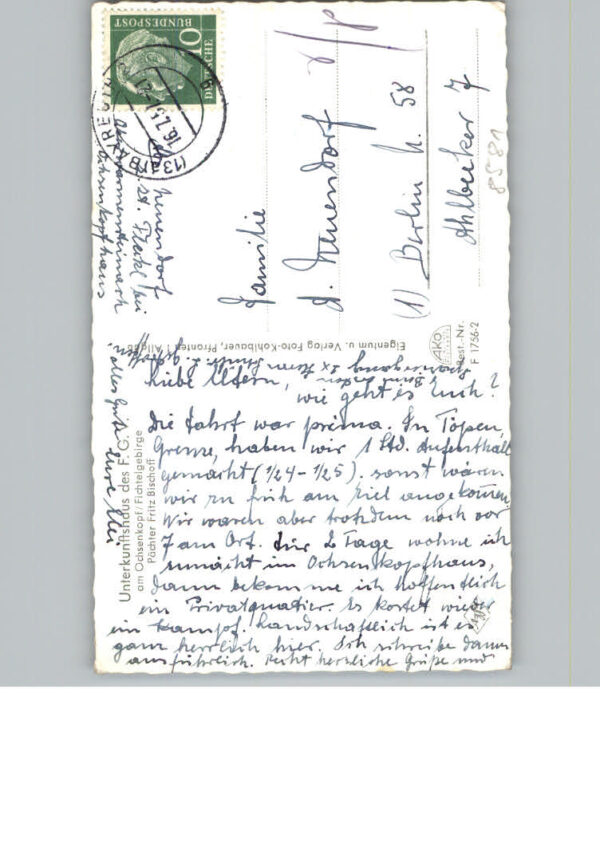 DEUTSCHE
BUNDESPOST
10
(13a) BAYREUTH
Neuendorf
st. Fleckl bei
Oberwarmensteinach
Ochsenkopfhaus
Familie
d. Neuendorf
(1) Berlin N. 58
Ahlbecker 7
8581
Eigentum u. Verlag Foto-Kohlbauer, Pfronten / Allgäu
Ako
Best.-Nr.
F 1756-2
Unterkunftshaus des F.G.V.
am Ochsenkopf/Fichtelgebirge
Pächter Fritz Bischoff
Liebe Eltern,
wie geht es Euch?
Die Fahrt war prima. In Töpen,
Grenze, haben wir 1 Std. Aufenthalt
gemacht (1/24 - 1/25). sonst wären
wir zu früh am Ziel angekommen
Wir waren aber trotzdem noch vor
7 am Ort. Für 2 Tage wohne ich
zunächst im Ochsenkopfhaus,
dann bekomme ich hoffentlich
ein Privatquatier. Es kostet wieder
ein Kampf. Landschaftlich ist es
ganz herrlich hier. Ich schreibe dann
ausführlich. Recht herzliche Grüße und
alles Gute Eure